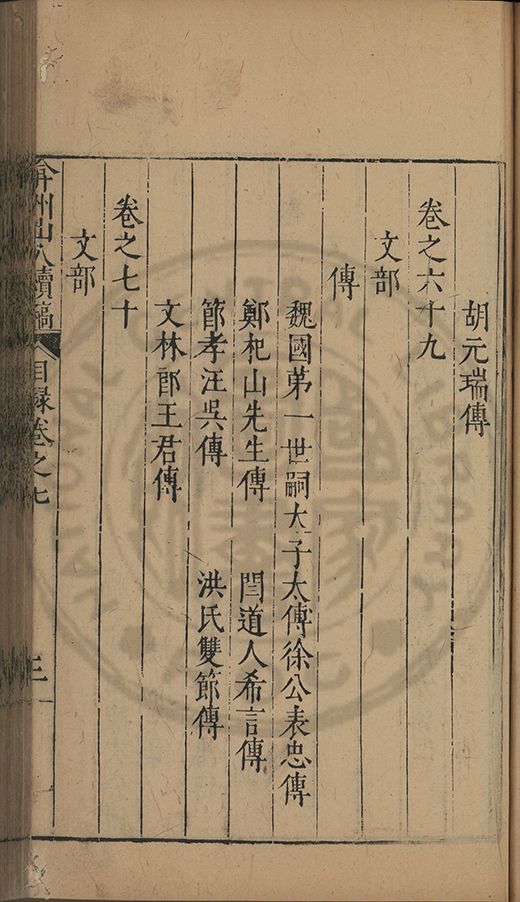 胡元瑞傳
卷之六十九
文部
傳
魏國第一世嗣太子太傅徐公表忠傳
鄭杞山先生傳 閆道人希言傳
節孝汪吳傳 洪氏雙節傳
文林郎王君傳
卷之七十
文部
弇州山人續稿 目錄卷之七 三